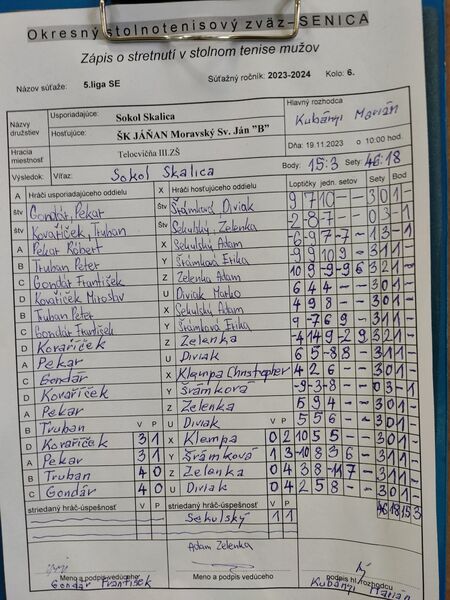 Okresný stolnotenisový zväz-SENICA
Zápis o stretnutí v stolnom tenise mužov
Názov súťaže: 5.liga SE Súťažný ročník: 2023-2024 Kolo: 6.
Názvy družstiev Usporiadajúce: Sokol Skalica Hlavný rozhodca
Hosťujúce: ŠK JÁŇAN Moravský Sv. Ján "B" Kubányi Marián
Hracia miestnosť Telocvičňa III.ZŠ Dňa: 19.11.2023 o 10:00 hod.
Výsledok: Víťaz: Sokol Skalica Body: 15:3 Sety: 46:18
A Hráči usporiadajúceho oddielu X Hráči hosťujúceho oddielu Loptičky jedn. setov Sety Bod
štv Gondár, Pekar Štv Šrámková Diviak 9 7 10 - - 3 0 1 -
štv Kovaříček, Truban Štv Sekulský, Zelenka - 0 3 - 1
A Pekar Róbert X Sekulský Adam
B Truban Peter Y Šrámková Erika 3 1 1 -
C Gondár František Z Zelenka Adam 10 9 -9 -9 6 3 2 1 -
D Kovaříček Miroslav U Diviak Marko 6 4 4 - - 3 0 1 -
B Truban Peter X Sekulský Adam 4 9 8 - - 3 0 1 -
C Gondár František Y Šrámková Erika 9 -7 6 9 - 3 1 1 -
D Kovaříček Z Zelenka -4 14 9 -2 9 3 2 1 -
A Pekar U Diviak 6 5 -8 8 - 3 1 1 -
C Gondár X Klempa Christopher 4 2 6 - - 3 0 1 -
D Kovaříček Y Šrámková -9 -3 -8 - - 0 3 - 1
A Pekar Z Zelenka 5 9 4 - - 3 0 1 -
B Truban U Diviak 5 5 6 - - 3 0 1 -
V P V P
D Kovaříček 3 1 X Klempa 0 2 10 5 5 - - 3 0 1 -
A Pekar 3 1 Y Šrámková 1 3 -10 8 3 6 - 3 1 1 -
B Truban 4 0 Z Zelenka 0 4 3 8 -11 7 - 3 1 1 -
C Gondár 4 0 U Diviak 0 4 2 5 8 - - 3 0 1 -
striedaný hráč-úspešnosť V P striedaný hráč-úspešnosť V P 46 18 15 3
Sekulský 1 1
Adam Zelenka
Gondár František Kubányi Marián
Meno a podpis vedúceho Meno a podpis vedúceho podpis hl. rozhodcu